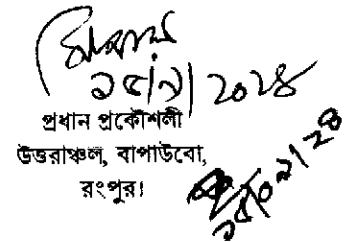 ১৫/৯/২০২৪
প্রধান প্রকৌশলী
উত্তরাঞ্চল, বাপাউবো,
রংপুর।
১৫/০৯/২৪